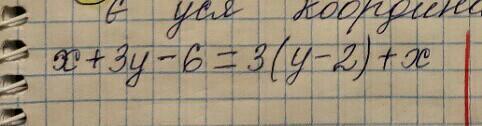 в уся координа
x+3y-6=3(y-2)+x